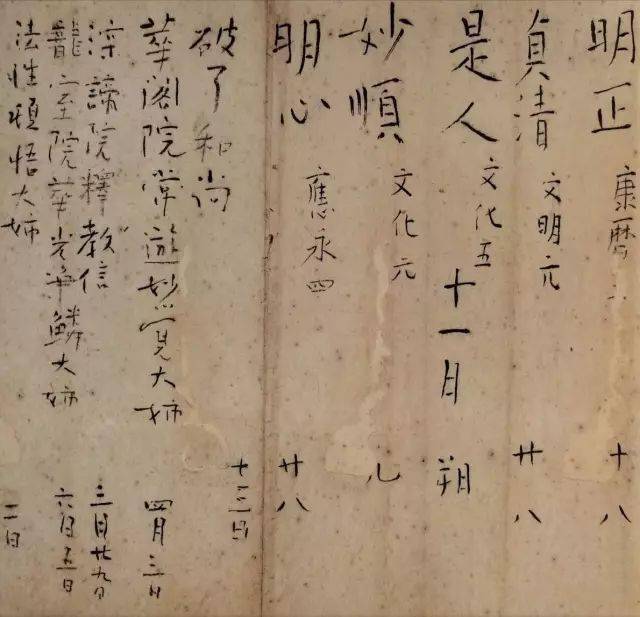 明正 康暦二 十八
貞清 文明元 廿八
是人 文化五 十一月 朔
妙順 文化元 九
明心 應永四 廿八
破了和尚 十三日
華閣院常遊妙寛大姉 四月三日
深諦院釋教信 三月廿九日
龍室院華光浄鱗大姉 六月五日
法性頓悟大姉 二日